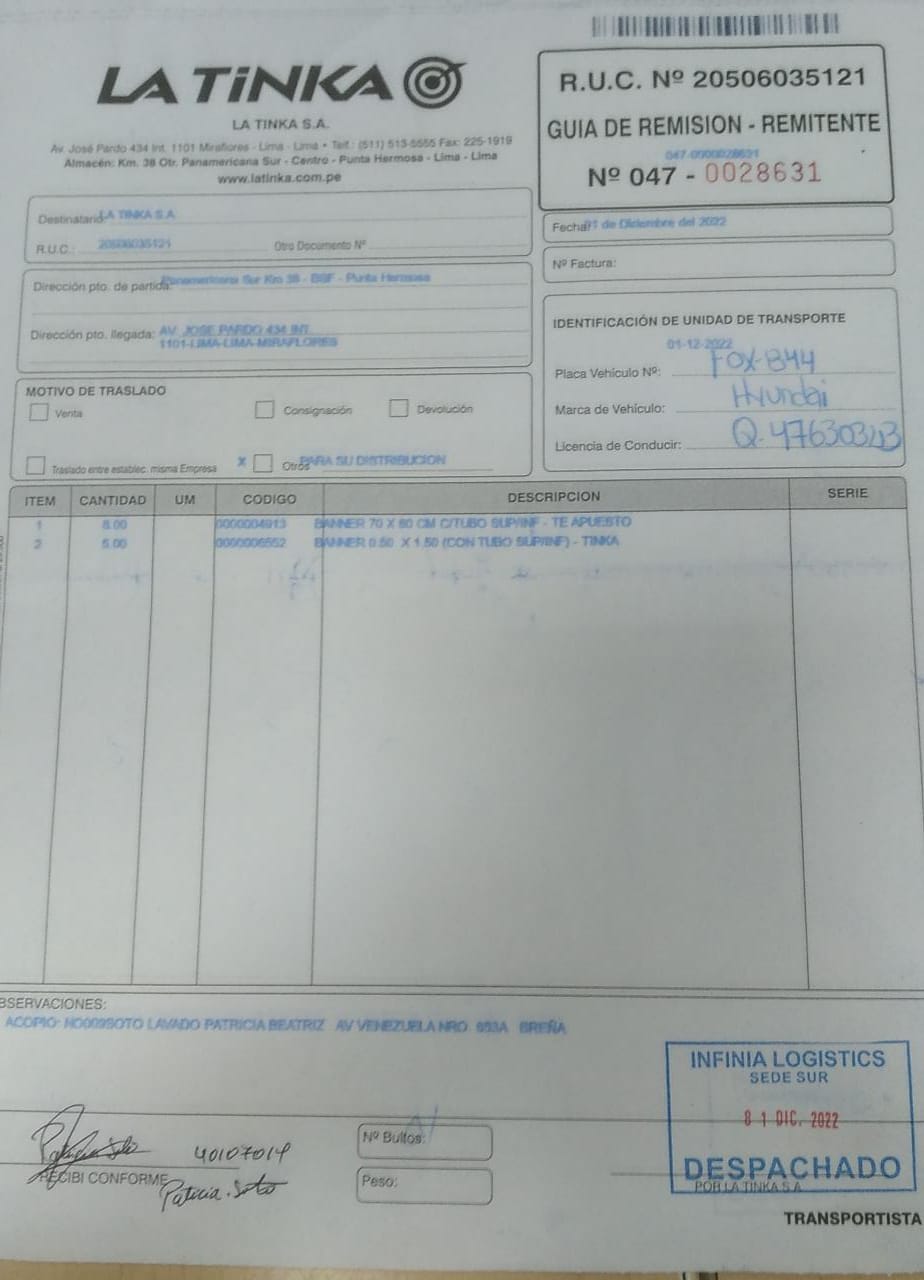 LA TiNKA
LA TINKA S.A.
Av. José Pardo 434 Int. 1101 Miraflores - Lima - Lima • Telf.: (511) 513-5555 Fax: 225-1919
Almacén: Km. 38 Otr. Panamericana Sur - Centro - Punta Hermosa - Lima - Lima
www.latinka.com.pe
R.U.C. Nº 20506035121
GUIA DE REMISION - REMITENTE
047-0000028631
Nº 047 - 0028631
Destinatario: LA TINKA S.A.
R.U.C.: 20506035121 Otro Documento Nº
Fecha: 01 de Diciembre del 2022
Nº Factura:
Dirección pto. de partida: Panamericana Sur Km 38 - BSF - Punta Hermosa
Dirección pto. llegada: AV. JOSE PARDO 434 INT.
1101-LIMA-LIMA-MIRAFLORES
IDENTIFICACIÓN DE UNIDAD DE TRANSPORTE
01-12-2022
Placa Vehículo Nº: FOX-844
Marca de Vehículo: Hyundai
Licencia de Conducir: Q-47630343
MOTIVO DE TRASLADO
Venta Consignación Devolución
Traslado entre establec. misma Empresa X Otros PARA SU DISTRIBUCION
ITEM CANTIDAD UM CODIGO DESCRIPCION SERIE
1 8.00 0000004913 BANNER 70 X 80 CM C/TUBO SUP/INF - TE APUESTO
2 5.00 0000006552 BANNER 0.50 X 1.50 (CON TUBO SUP/INF) - TINKA
BSERVACIONES:
ACOPIO: NO009SOTO LAVADO PATRICIA BEATRIZ AV VENEZUELA NRO. 893A BREÑA
INFINIA LOGISTICS
SEDE SUR
DIC. 2022
DESPACHADO
POR LA TINKA S.A.
40107014
RECIBI CONFORME
Patricia. Soto
Nº Bultos:
Peso:
TRANSPORTISTA